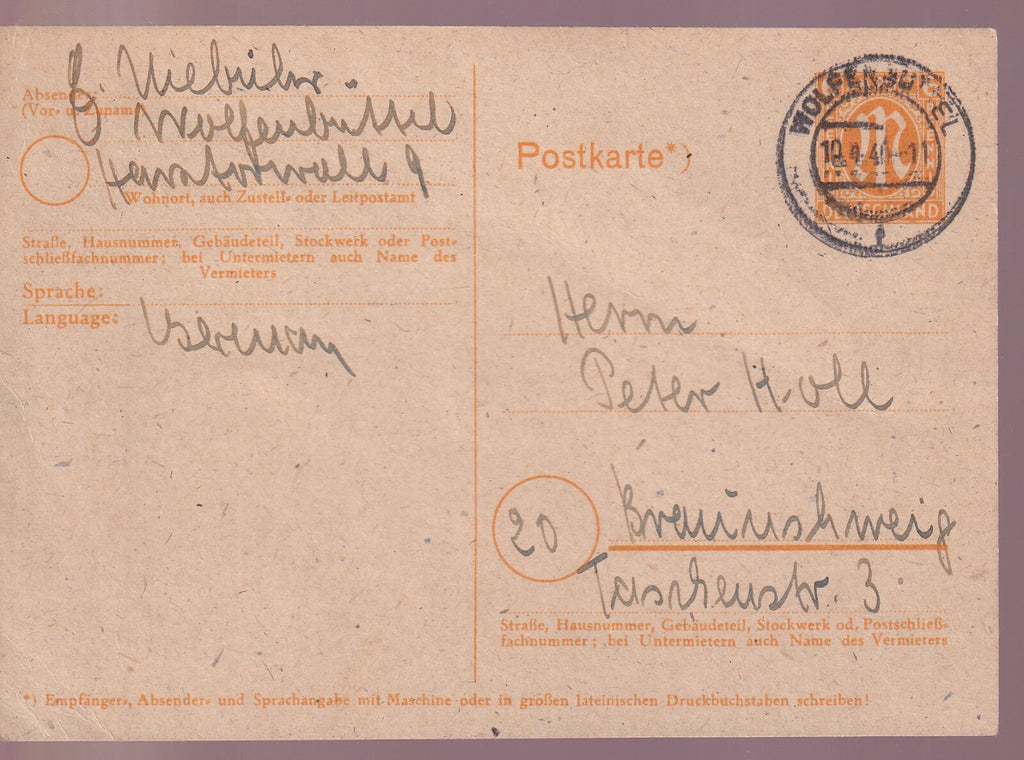 Absender:
(Vor- u. Zuname)
E. Niebuhr.
Wolfenbüttel
Harztorwall 9
Wohnort, auch Zustell- oder Leitpostamt
Straße, Hausnummer, Gebäudeteil, Stockwerk oder Post-
schließfachnummer; bei Untermietern auch Name des
Vermieters
Sprache:
Language:
German
Postkarte*)
WOLFENBÜTTEL
DEUTSCHLAND
Herrn
Peter Holl
20
Braunschweig
Taschenstr. 3.
Straße, Hausnummer, Gebäudeteil, Stockwerk od. Postschließ-
fachnummer; bei Untermietern auch Name des Vermieters
*) Empfänger-, Absender- und Sprachangabe mit Maschine oder in großen lateinischen Druckbuchstaben schreiben!